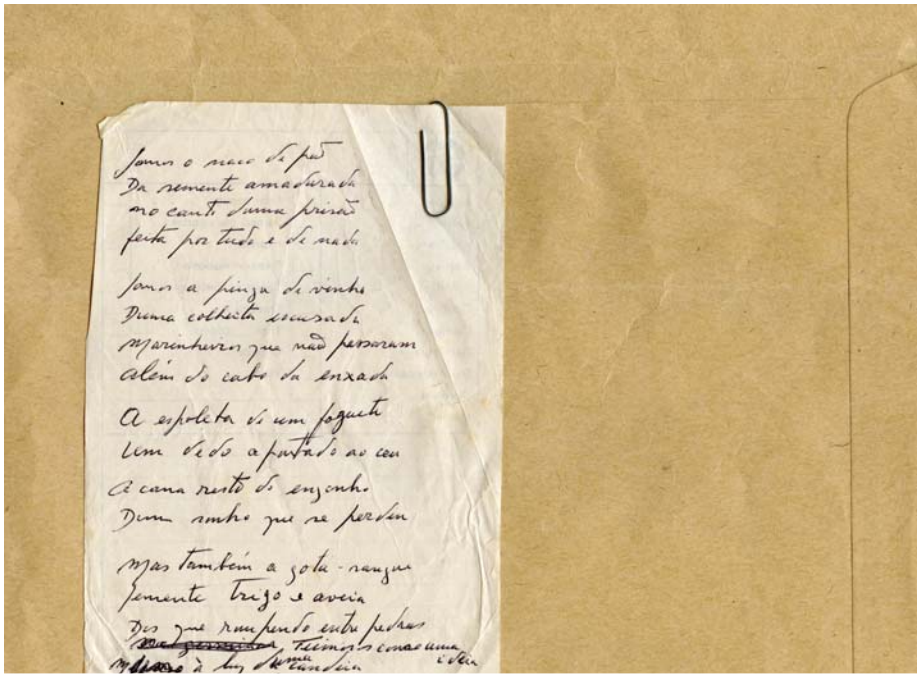 Somos o naco de pão
Da semente amadurada
no canto duma prisão
feita por tudo e de nada
Somos a pinga de vinho
Duma colheita escusada
Marinheiros que não passaram
Além do cabo da enxada
A espoleta de um foguete
Um dedo apontado ao ceu
A cana resto do engenho
Dum sonho que se perdeu
Mas também a gota-sangue
Semente trigo e aveia
Dos que rompendo entre pedras
Teimosos como uma ideia
à luz duma candeia